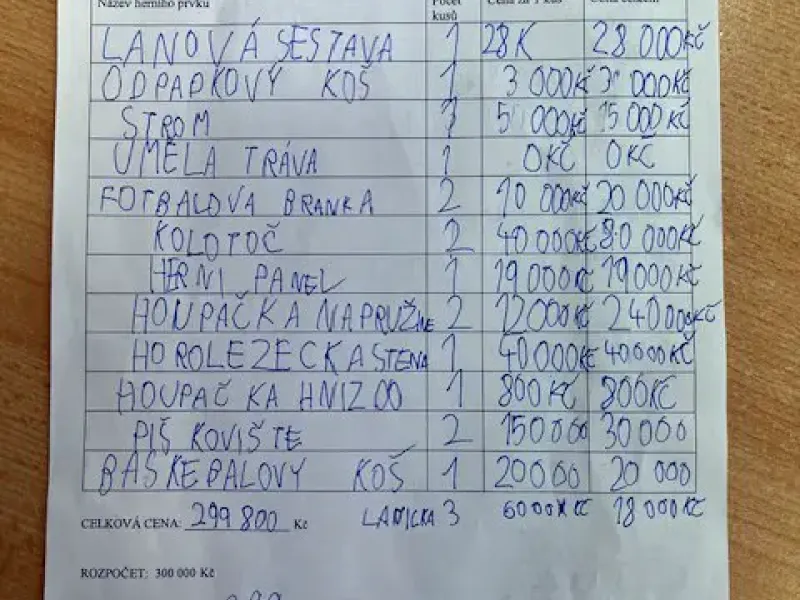 Název herního prvku Počet kusů Cena za 1 kus Cena celkem
LANOVÁ SESTAVA 1 28K 28 000Kč
ODPADKOVÝ KOŠ 1 3 000Kč 3 000Kč
STROM 5 000Kč 15 000Kč
UMĚLA TRÁVA 1 0KČ 0KČ
FOTBALOVA BRANKA 2 10 000Kč 20 000Kč
KOLOTOČ 2 40 000Kč 80 000Kč
HERNI PANEL 1 19 000Kč 19 000Kč
HOUPAČKA NAPRUŽINE 2 12000Kč 24000Kč
HOROLEZECKASTENA 1 40000Kč 40000Kč
HOUPAČKA HNIZDO 1 800KČ 800KČ
PIŠKOVIŠTE 2 15000 30 000
BASKEBALOVY KOŠ 1 20000 20 000
CELKOVÁ CENA: 299 800 Kč LAVICKA 3 6000 Kč 18 000Kč
ROZPOČET: 300 000 Kč